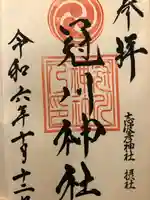 奉拝
志波彦神社 摂社
冠川神社
令和六年十月十二日